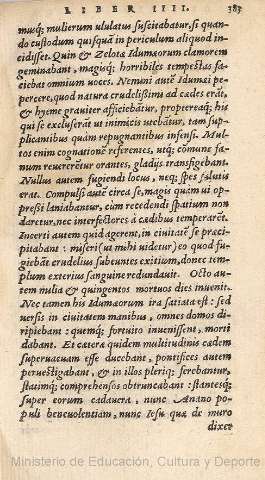 LIBER IIII. 383
musq; mulierum ululatus suscitabatur, si quan
do custodum quisquã in periculum aliquod in
cidisset. Quin & Zelotæ Idumæorum clamorem
geminabant, magisq; horribiles tempestas fa
ciebat omnium uoces. Nemini autē Idumæi pe
percere, quod natura crudelissimi ad cædes erãt,
& hyeme grauiter afficiebãtur, proptereaq; his
qui se excluserãt ut inimicis utebãtur, tam sup
plicantibus quàm repugnantibus infensi. Mul
tos enim cognationē referentes, utq; comune fa
num reuererētur orantes, gladijs transfigebant.
Nullus autem fugiendi locus, neq; spes salutis
erat. Compulsi autē circa se, magis quàm ui op-
pressi laniabantur, cum recedendi spatium non
daretur, nec interfectores à cædibus temperarēt.
Incerti autem quid agerent, in ciuitatē se præci-
pitabant: miseri (ut mihi uidetur) eo quod fu-
giebãt crudelius subeuntes exitium, donec tem-
plum exterius sanguine redundauit. Octo au-
tem milia & quingentos mortuos dies inuenit.
Nec tamen his Idumæorum ira satiata est: sed
uersis in ciuitatem manibus, omnes domos di-
ripiebant: quemq; fortuito inuenissent, morti
dabant. Et cætera quidem multitudinis cædem
superuacuam esse ducebant, pontifices autem
peruestigabant, & in illos pleriq; ferebantur,
statimq; comprehensos obtruncabant: stantesq;
super eorum cadauera, nunc Anano po-
puli beneuolentiam, nunc Iesu quæ de muro
dixet
Ministerio de Educación, Cultura y Deporte